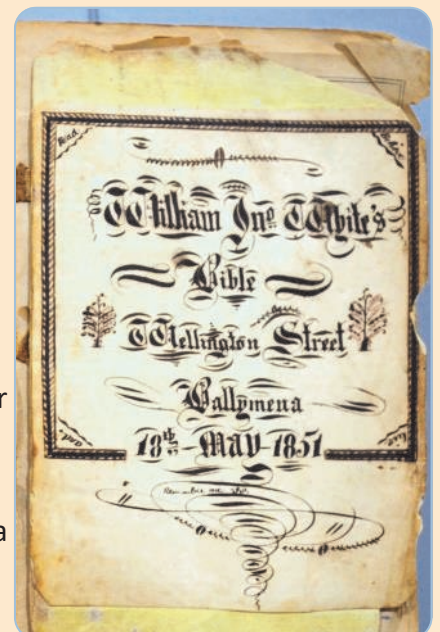 Read
William Jno White's
Bible
Wellington Street
Ballymena
and
18th - May - 1851
r
a